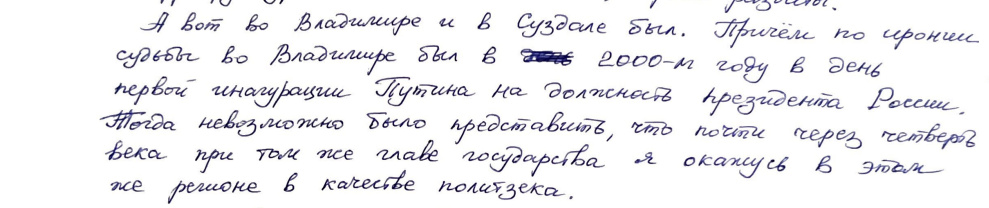 А вот во Владимире и в Суздале был. Причём по иронии
судьбы во Владимире был в 2000-м году в день
первой инагурации Путина на должность президента России.
Тогда невозможно было представить, что почти через четверть
века при том же главе государства я окажусь в этом
же регионе в качестве политзека.